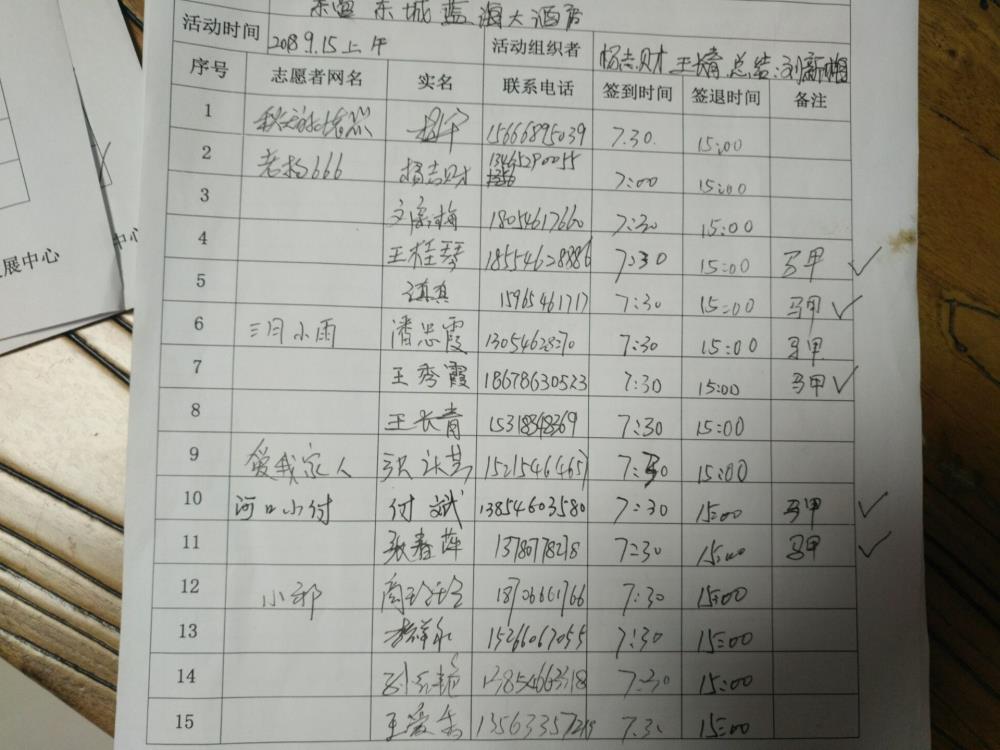 东城蓝海大酒店
活动时间 2018 9.15上午 活动组织者 杨志财 王长青 总结:刘新梅
序号 志愿者网名 实名 联系电话 签到时间 签退时间 备注
1 15666895039 7.30. 15:00
2 老杨666 杨志财 13465290055 7:00 15:00
3 18054617660 7:30 15:00
4 王桂琴 18554628886 7:30 15:00 马甲 ✓
5 15965461717 7:30 15:00 马甲 ✓
6 三月小雨 潘忠霞 13054628270 7:30 15:00 马甲
7 王秀霞 18678630523 7:30 15:00 马甲 ✓
8 王长青 15318348369 7:30 15:00
9 爱我家人 15215464657 7:30 15:00
10 河口小付 付斌 13854603580 7:30 15:00 马甲 ✓
11 张春萍 13780778278 7:30 15:00 马甲 ✓
12 小郭 18706661766 7:30 15:00
13 15266067055 7:30 15:00
14 13854663318 7:30 15:00
15 王爱 7.30 15:00
展中心
中心